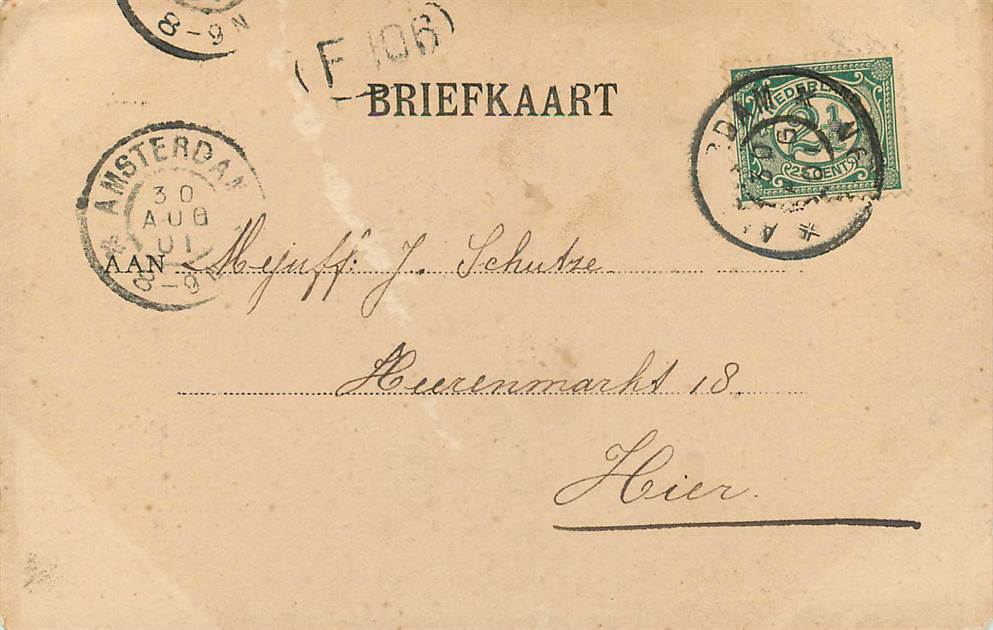 8-9N
(F 106)
BRIEFKAART
NEDERLAND
2½
2½ CENT
* AMSTERDAM
30
AUG
01
8-9
AAN Mejuff. J. Schutze
Heerenmarkt 18.
Hier.